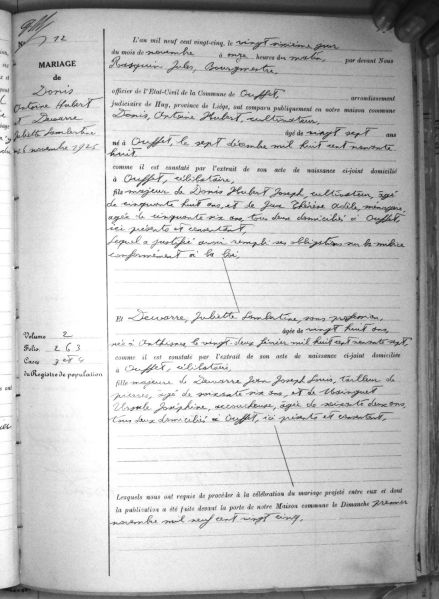 N° 12
MARIAGE
de
Donis
Antoine Hubert
et Dewarre
Juliette Lambertine
novembre 1925
Volume 2
Folio 263
Cases 3 et 4
du Registre de population
L'an mil neuf cent vingt-cinq, le vingt sixième jour
du mois de novembre à onze heures du matin, par devant Nous
Rasquin Jules, Bourgmestre,
officier de l'Etat-Civil de la Commune de Ouffet, arrondissement
judiciaire de Huy, province de Liége, ont comparu publiquement en notre maison commune
Donis, Antoine Hubert, cultivateur,
âgé de vingt sept ans
né à Ouffet, le sept décembre mil huit cent nonante
huit
comme il est constaté par l'extrait de son acte de naissance ci-joint domicilié
à Ouffet, célibataire,
fils majeur de Donis Hubert Joseph, cultivateur, âgé
de cinquante huit ans, et de Thérèse Adile, ménagère,
agée de cinquante six ans, tous deux domiciliés à Ouffet,
ici présents et consentant,
Lequel a justifié avoir rempli ses obligations sur la milice
conformément à la loi;
Et Dewarre, Juliette Lambertine, sans profession,
âgée de vingt huit ans,
née à Anthisnes le vingt deux février mil huit cent nonante sept
comme il est constaté par l'extrait de son acte de naissance ci-joint domiciliée
à Ouffet, célibataire,
fille majeure de Dewarre Jean Joseph Louis, tailleur de
pierres, âgé de soixante six ans, et de
Ursule Joséphine, accoucheuse, âgée de soixante deux ans,
tous deux domiciliés à Ouffet, ici présents et consentant,
Lesquels nous ont requis de procéder à la célébration du mariage projeté entre eux et dont
la publication a été faite devant la porte de notre Maison commune le Dimanche premier
novembre mil neuf cent vingt cinq,